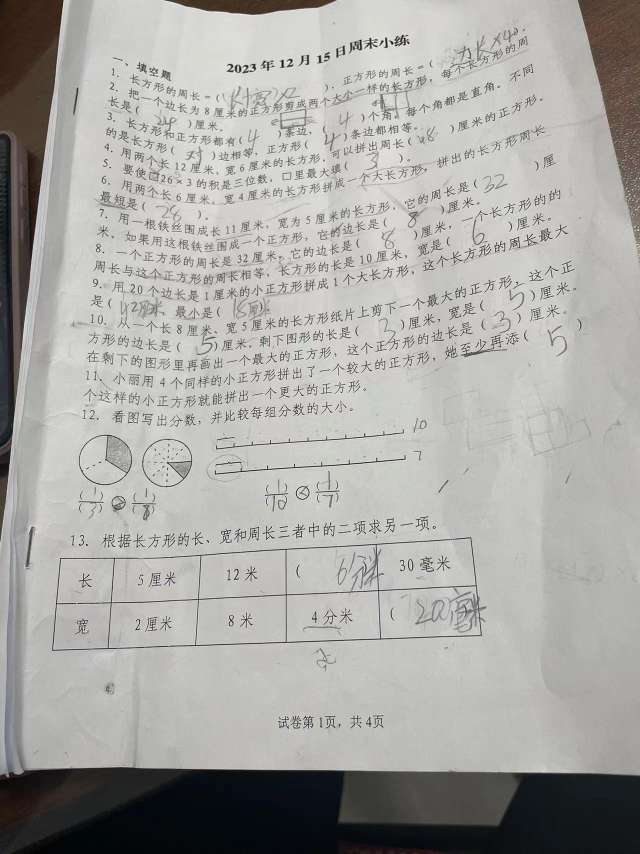 2023年12月15日周末小练
一、填空题
1. 长方形的周长=((长+宽)×2),正方形的周长=(边长×4)。
2. 把一个边长为8厘米的正方形剪成两个大小一样的长方形,每个长方形的周
长是(24)厘米。
3. 长方形和正方形都有(4)条边,(4)个角,每个角都是直角。不同
的是长方形(对)边相等,正方形(4)条边都相等。
4. 用两个长12厘米,宽6厘米的长方形,可以拼出周长(48)厘米的正方形。
5. 要使□26×3的积是三位数,□里最大填(3)。
6. 用两个长6厘米,宽4厘米的长方形拼成一个大长方形,拼出的长方形周长
最短是(28)。
7. 用一根铁丝围成长11厘米,宽为5厘米的长方形,它的周长是(32)厘
米,如果用这根铁丝围成一个正方形,它的边长是(8)厘米。
8. 一个正方形的周长是32厘米,它的边长是(8)厘米,一个长方形的的
周长与这个正方形的周长相等,长方形的长是10厘米,宽是(6)厘米。
9. 用20个边长是1厘米的小正方形拼成1个大长方形,这个长方形的周长最大
是(42厘米 最小是(18厘米
10. 从一个长8厘米、宽5厘米的长方形纸片上剪下一个最大的正方形,这个正
方形的边长是(5)厘米,剩下图形的长是(3)厘米,宽是(5)厘米。
在剩下的图形里再画出一个最大的正方形,这个正方形的边长是(3)厘米。
11. 小丽用4个同样的小正方形拼出了一个较大的正方形,她至少再添(5)
个这样的小正方形就能拼出一个更大的正方形。
12. 看图写出分数,并比较每组分数的大小。
10
7
(1)/(3) (1)/(8) (1)/(10) < (1)/(7)
13. 根据长方形的长、宽和周长三者中的二项求另一项。
长 5厘米 12米 (6分米 30毫米
宽 2厘米 8米 4分米 (20毫米
试卷第1页,共4页